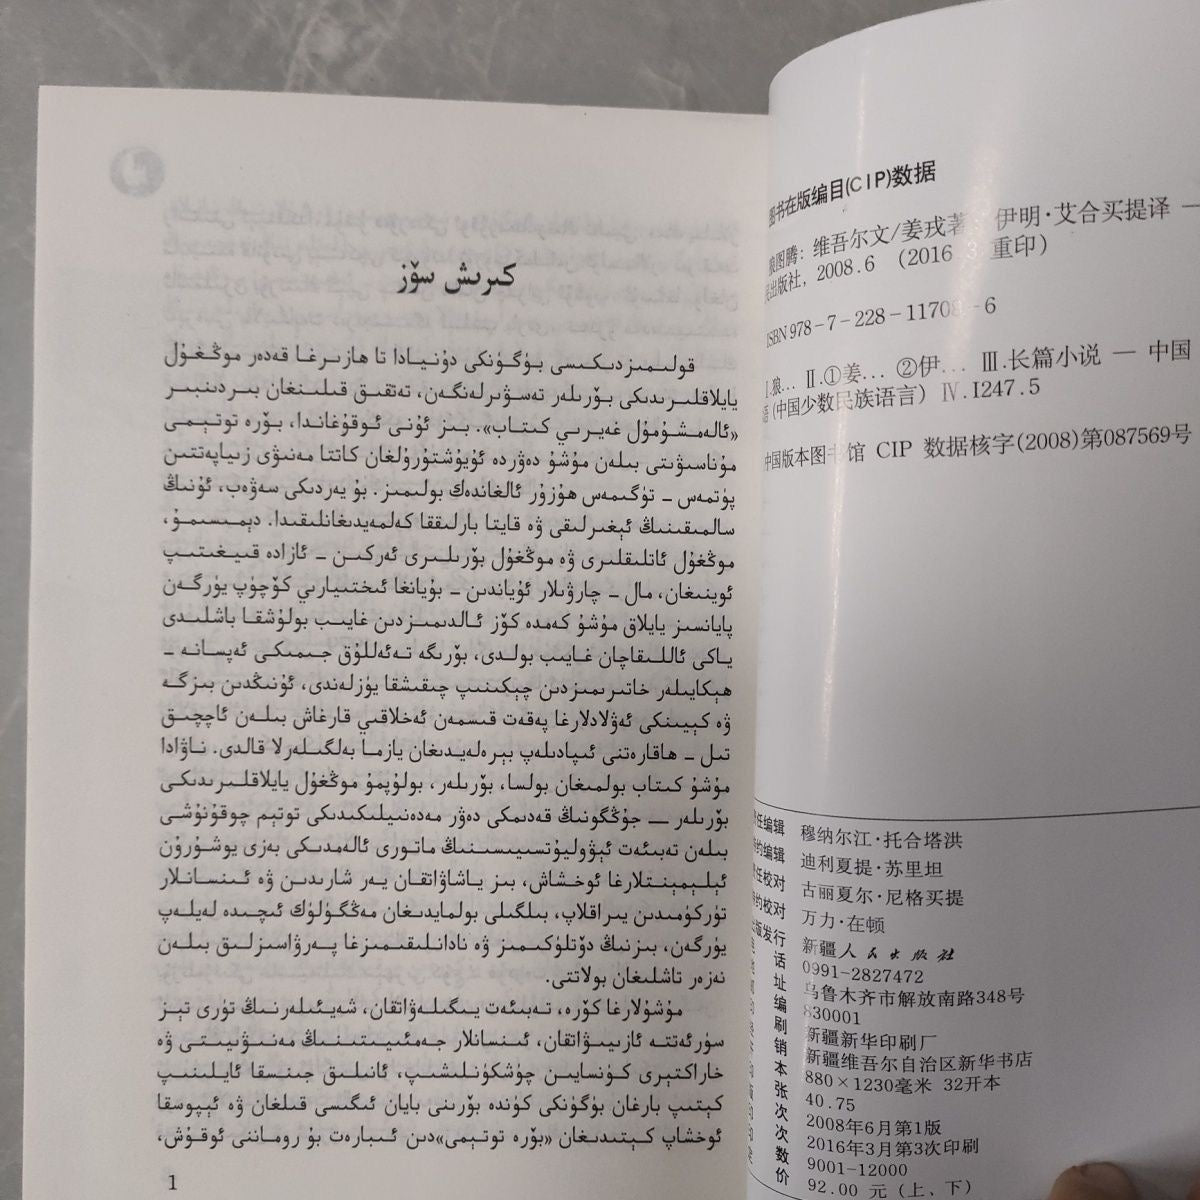 كىرىش سۆز
قولىمىزدىكىسى بۈگۈنكى دۇنيادا تا ھازىرغا قەدەر موڭغۇل
يايلاقلىرىدىكى بۆرىلەر تەسۋىرلەنگەن، تەتقىق قىلىنغان بىردىنبىر
«ئالەمشۇمۇل غەيرىي كىتاب». بىز ئۇنى ئوقۇغاندا، بۆرە توتېمى
مۇناسىۋىتى بىلەن مۇشۇ دەۋردە ئۇيۇشتۇرۇلغان كاتتا مەنىۋى زىياپەتتىن
پۈتمەس ـ تۈگىمەس ھۇزۇر ئالغاندەك بولىمىز. بۇ يەردىكى سەۋەب، ئۇنىڭ
سالمىقىنىڭ ئېغىرلىقى ۋە قايتا بارلىققا كەلمەيدىغانلىقىدا. دېمىسىمۇ،
موڭغۇل ئاتلىقلىرى ۋە موڭغۇل بۆرىلىرى ئەركىن ـ ئازادە قىيغىتىپ
ئوينىغان، مال ـ چارۋىلار ئۇياندىن ـ بۇيانغا ئىختىيارىي كۆچۈپ يۈرگەن
پايانسىز يايلاق مۇشۇ كەمدە كۆز ئالدىمىزدىن غايىب بولۇشقا باشلىدى
ياكى ئاللىقاچان غايىب بولدى، بۆرىگە تەئەللۇق جىمىكى ئەپسانە ـ
ھېكايىلەر خاتىرىمىزدىن چېكىنىپ چىقىشقا يۈزلەندى، ئۇنىڭدىن بىزگە
ۋە كېيىنكى ئەۋلادلارغا پەقەت قىسمەن ئەخلاقىي قارغاش بىلەن ئاچچىق
تىل ـ ھاقارەتنى ئىپادىلەپ بېرەلەيدىغان يازما بەلگىلەرلا قالدى. ناۋادا
مۇشۇ كىتاب بولمىغان بولسا، بۆرىلەر، بولۇپمۇ موڭغۇل يايلاقلىرىدىكى
بۆرىلەر — جۇڭگونىڭ قەدىمكى دەۋر مەدەنىيلىكىدىكى توتېم چوقۇنۇشى
بىلەن تەبىئەت ئېۋوليۇتسىيىسىنىڭ ماتورى ئالەمدىكى بەزى يوشۇرۇن
ئېلېمېنتلارغا ئوخشاش، بىز ياشاۋاتقان يەر شارىدىن ۋە ئىنسانلار
تۈركۈمىدىن يىراقلاپ، بىلگىلى بولمايدىغان مەڭگۈلۈك ئىچىدە لەيلەپ
يۈرگەن، بىزنىڭ دۆتلۈكىمىز ۋە نادانلىقىمىزغا پەرۋاسىزلىق بىلەن
نەزەر تاشلىغان بولاتتى.
مۇشۇلارغا كۆرە، تەبىئەت يىگىلەۋاتقان، شەيئىلەرنىڭ تۈرى تېز
سۈرئەتتە ئازىيىۋاتقان، ئىنسانلار جەمئىيىتىنىڭ مەنىۋىيىتى ۋە
خاراكتېرى كۈنسايىن چۈشكۈنلىشىپ، ئانىلىق جىنىسقا ئايلىنىپ
كېتىپ بارغان بۈگۈنكى كۈندە بۆرىنى بايان ئىگىسى قىلغان ۋە ئېپوسقا
ئوخشاپ كېتىدىغان «بۆرە توتېمى»دىن ئىبارەت بۇ روماننى ئوقۇش،
1
图书在版编目(CIP)数据
狼图腾：维吾尔文/姜戎著 伊明·艾合买提译 —
民出版社，2008.6 （2016 3 重印）
ISBN 978-7-228-11708-6
Ⅰ.狼… Ⅱ.①姜… ②伊… Ⅲ.长篇小说 — 中国
语(中国少数民族语言) Ⅳ.I247.5
中国版本图书馆 CIP 数据核字(2008)第087569号
责任编辑 穆纳尔江·托合塔洪
特约编辑 迪利夏提·苏里坦
责任校对 古丽夏尔·尼格买提
特约校对 万力·在顿
出版发行 新疆人民出版社
话 0991-2827472
址 乌鲁木齐市解放南路348号
编 830001
刷 新疆新华印刷厂
销 新疆维吾尔自治区新华书店
本 880×1230毫米 32开本
张 40.75
次 2008年6月第1版
次 2016年3月第3次印刷
数 9001-12000
价 92.00 元（上、下）